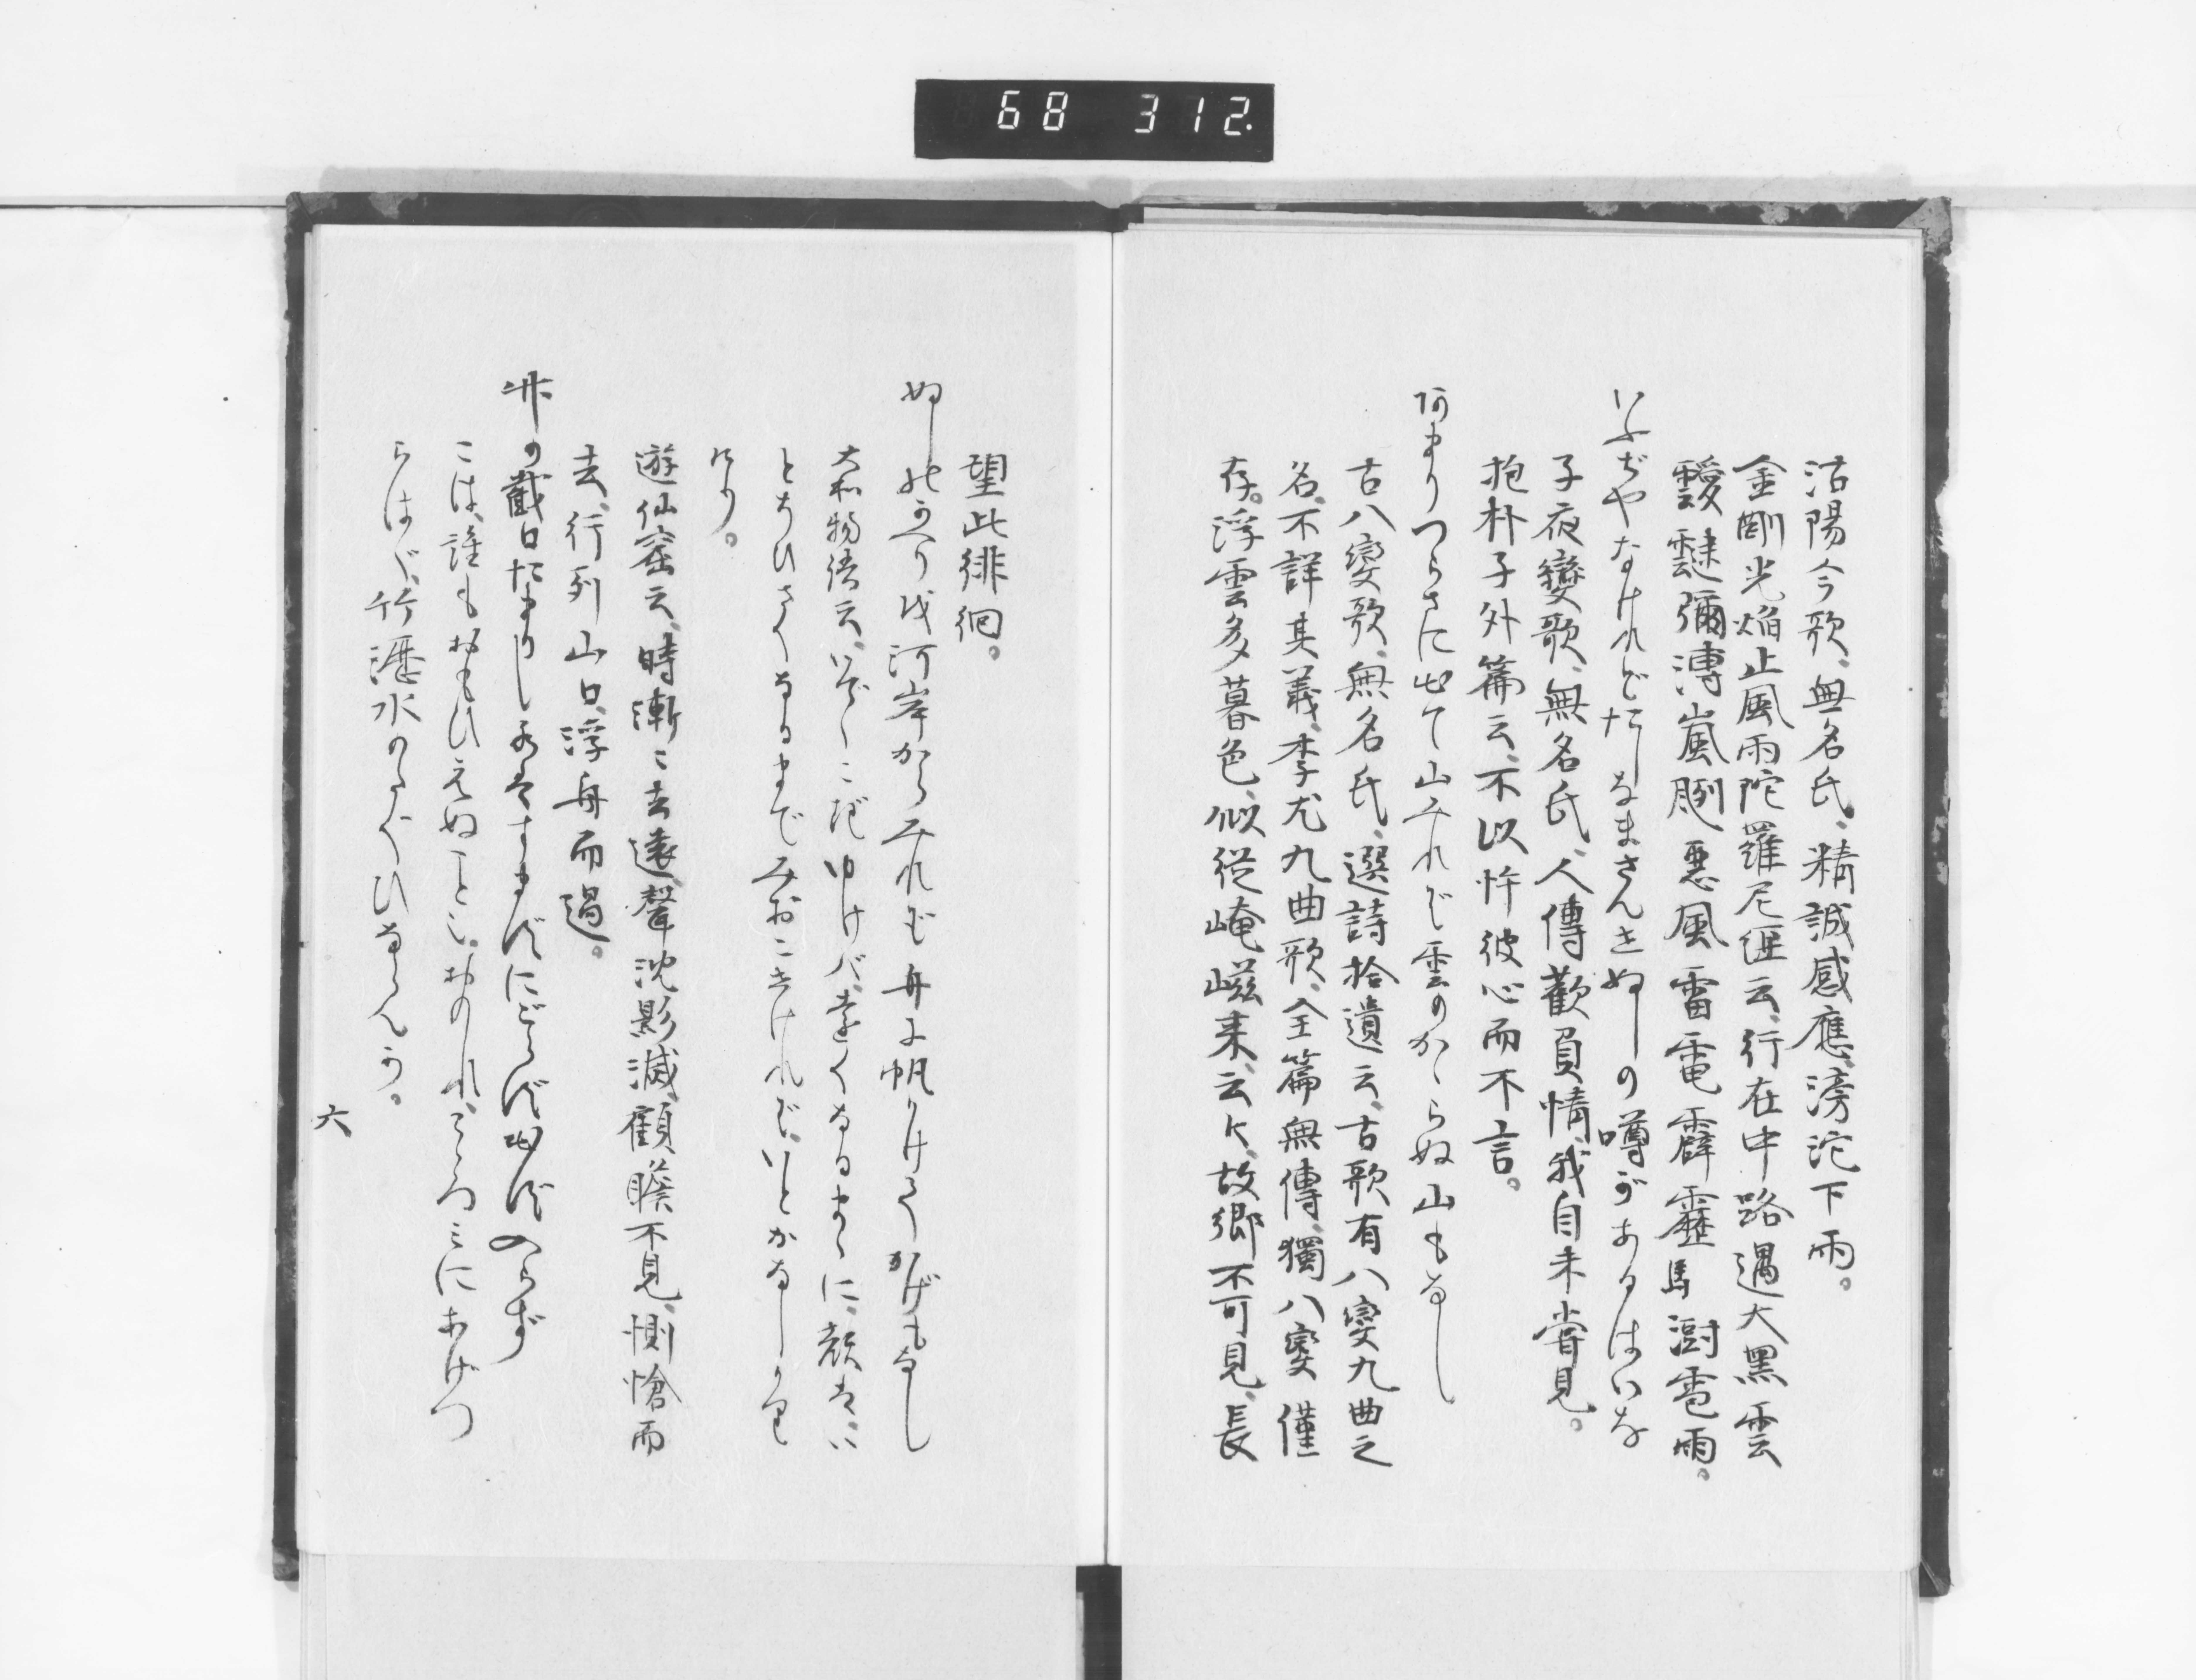 68 312.
沽陽今歌、無名氏、精誠感應、滂沱下雨。
金剛光焰止風雨陀羅尼經云、行在中路遇大黑雲
靉靆彌溥嵐颷惡風雷電霹靂馬澍雹雨。
いふぢやなけれどたしなまさんせぬしの噂があるはいな
子夜變歌、無名氏、人傳歡負情、我自未嘗見。
抱朴子外篇云、不以忤彼心而不言。
阿まりつらさに出て山みれど雲のかゝらぬ山もなし
古八變歌、無名氏、選詩拾遺云、古歌有八變九曲之
名、不詳其義、李尤九曲歌、全篇無傳、獨八變僅
存。浮雲多暮色、似從崦嵫来、云々、故鄉不可見、長
望此徘徊。
ぬしのかへり代河岸からみれば舟は帆かけてかげもなし
大和物語云、いでこぎゆけバ、遠くなるまゝに、顔は、い
とちひさくなるまでみおこせけれバ、いとかなしかり
けり。
遊仙窟云、時漸ゝ去遠、聲沈影滅、顧瞻不見、惻愴而
去、行列山口、浮舟而過。
竹の截口たまりし水はすまずにごらず出ず入らず
こは、誰もおもひえぬこと、おのれ、こゝろミにあげつ
らはゞ、竹瀝水のたぐひならんか。
六